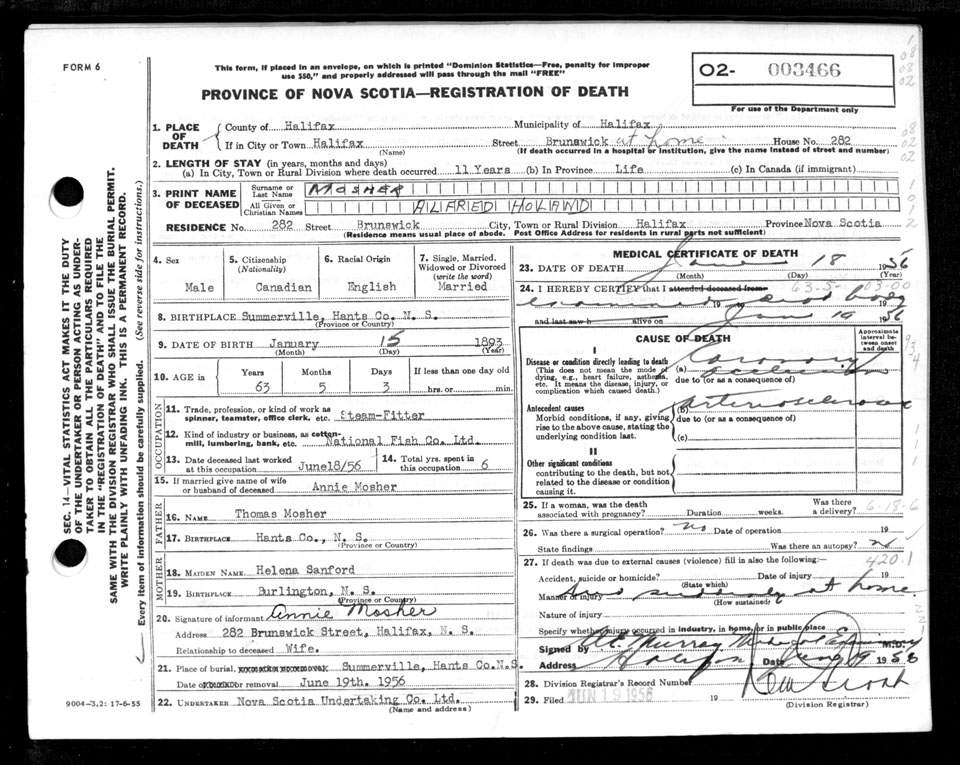 FORM 6
This form, if placed in an envelope, on which is printed "Dominion Statistics—Free, penalty for improper
use $50," and properly addressed will pass through the mail "FREE"
O2- 003466
For use of the Department only
PROVINCE OF NOVA SCOTIA—REGISTRATION OF DEATH
SEC. 14—VITAL STATISTICS ACT MAKES IT THE DUTY
OF THE UNDERTAKER OR PERSON ACTING AS UNDER-
TAKER TO OBTAIN ALL THE PARTICULARS REQUIRED
IN THE "REGISTRATION OF DEATH" AND TO FILE THE
SAME WITH THE DIVISION REGISTRAR WHO SHALL ISSUE THE BURIAL PERMIT.
WRITE PLAINLY WITH UNFADING INK. THIS IS A PERMANENT RECORD.
Every item of information should be carefully supplied. (See reverse side for instructions.)
1. PLACE OF DEATH
County of Halifax Municipality of Halifax
If in City or Town Halifax Street Brunswick at home House No. 282
(Name) (If death occurred in a hospital or institution, give the name instead of street and number)
2. LENGTH OF STAY (in years, months and days)
(a) In City, Town or Rural Division where death occurred 11 Years (b) In Province Life (c) In Canada (if immigrant)
3. PRINT NAME OF DECEASED
Surname or Last Name MOSHER
All Given or Christian Names ALFRED HOLAND
RESIDENCE No. 282 Street Brunswick City, Town or Rural Division Halifax Province Nova Scotia
(Residence means usual place of abode. Post Office Address for residents in rural parts not sufficient)
4. Sex
Male
5. Citizenship (Nationality)
Canadian
6. Racial Origin
English
7. Single, Married, Widowed or Divorced (write the word)
Married
8. BIRTHPLACE Summerville, Hants Co. N. S.
(Province or Country)
9. DATE OF BIRTH January 15 1893
(Month) (Day) (Year)
10. AGE in Years Months Days If less than one day old
63 5 3 hrs. or min.
OCCUPATION
11. Trade, profession, or kind of work as
spinner, teamster, office clerk, etc. Steam-Fitter
12. Kind of industry or business, as cotton-
mill, lumbering, bank, etc. National Fish Co. Ltd.
13. Date deceased last worked
at this occupation June18/56
14. Total yrs. spent in
this occupation 6
15. If married give name of wife
or husband of deceased Annie Mosher
FATHER
16. NAME Thomas Mosher
17. BIRTHPLACE Hants Co., N. S.
(Province or Country)
MOTHER
18. MAIDEN NAME Helena Sanford
19. BIRTHPLACE Burlington, N. S.
(Province or Country)
20. Signature of informant Annie Mosher
Address 282 Brunswick Street, Halifax, N. S.
Relationship to deceased Wife.
21. Place of burial, Summerville, Hants Co.N.S.
Date or removal June 19th. 1956
22. UNDERTAKER Nova Scotia Undertaking Co. Ltd.
(Name and address)
9004-3.2: 17-6-55
MEDICAL CERTIFICATE OF DEATH
23. DATE OF DEATH June 18 1956
(Month) (Day) (Year)
24. I HEREBY CERTIFY that I attended deceased from 63-5- 03-00
examined dead body 19
and last saw h alive on June 19 1956
CAUSE OF DEATH
Approximate interval between onset and death
I
Disease or condition directly leading to death
(This does not mean the mode of dying, e.g., heart failure, asthenia, etc. It means the disease, injury, or complication which caused death.)
(a) Coronary occlusion
due to (or as a consequence of)
Antecedent causes
Morbid conditions, if any, giving rise to the above cause, stating the underlying condition last.
(b) Arteriosclerosis
due to (or as a consequence of)
(c)
II
Other significant conditions
contributing to the death, but not related to the disease or condition causing it.
25. If a woman, was the death Was there
associated with pregnancy? Duration weeks. a delivery? 6-18-6
26. Was there a surgical operation? no Date of operation 19
State findings Was there an autopsy? no
27. If death was due to external causes (violence) fill in also the following: 420.1
Accident, suicide or homicide? Date of injury 19
(State which)
Manner of injury Died suddenly at home.
(How sustained)
Nature of injury
Specify whether injury occurred in industry, in home, or in public place
Signed by Murray Medical Examiner M.D.
Address Halifax Date June 19 1956
28. Division Registrar's Record Number
29. Filed JUN 19 1956 19
(Division Registrar)